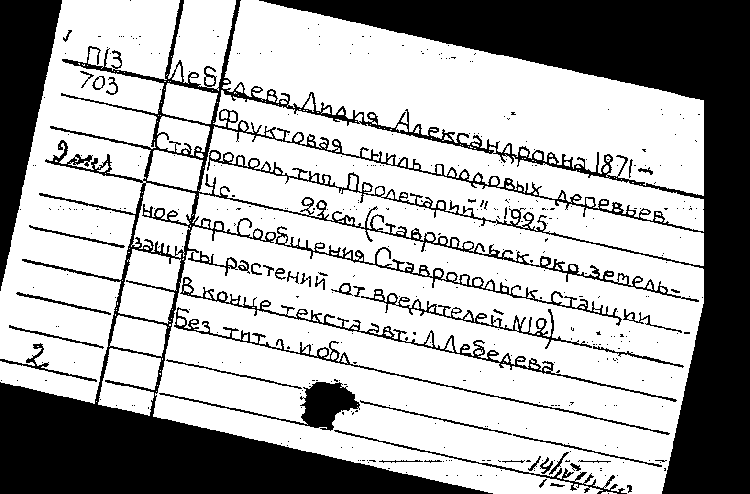 П13
703
Лебедева, Лидия Александровна, 1871–
Фруктовая гниль плодовых деревьев.
Ставрополь, тип. „Пролетарий", 1925.
4 с. 22 см. (Ставропольск. окр. земель-
ное упр. Сообщения Ставропольск. станции
защиты растений от вредителей. N12).
В конце текста авт.: Л. Лебедева.
Без тит. л. и обл.
2